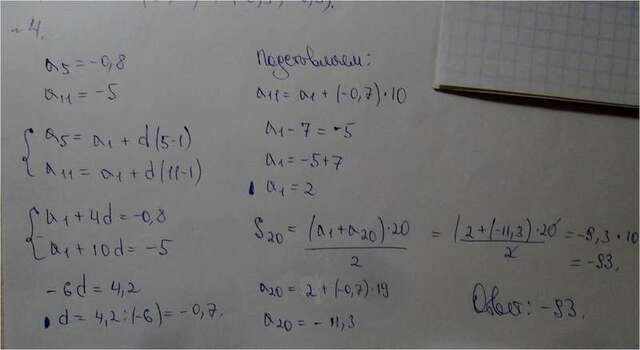 №4.
a₅ = -0,8
a₁₁ = -5
a₅ = a₁ + d(5-1)
a₁₁ = a₁ + d(11-1)
a₁ + 4d = -0,8
a₁ + 10d = -5
-6d = 4,2
d = 4,2:(-6) = -0,7.
Подставляем:
a₁₁ = a₁ + (-0,7)·10
a₁ - 7 = -5
a₁ = -5+7
a₁ = 2
S₂₀ = (a₁+a₂₀)·20 / 2 = (2+(-11,3)·20 / 2 = -9,3·10
= -93.
a₂₀ = 2 + (-0,7)·19
a₂₀ = -11,3
Ответ: -93.